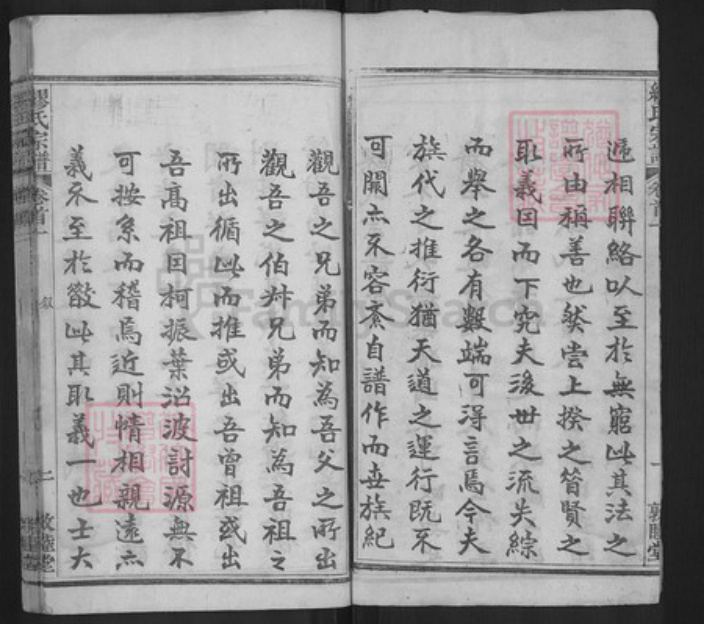 遞相聯絡以至於無窮此其法之
所由稱善也然嘗上揆之昔賢之
取義因而下究夫後世之流失綜
而舉之各有數端可得言焉今夫
族代之推衍猶天道之運行既不
可闕亦不容紊自譜作而世族紀
繆氏宗譜 卷首一 敘 二 敦睦堂
觀吾之兄弟而知為吾父之所出
觀吾之伯叔兄弟而知為吾祖之
所出循此而推或出吾曾祖或出
吾高祖因柯振葉沿波討源無不
可按系而稽焉近則情相親遠亦
義不至於散此其取義一也士大
FamilySearch